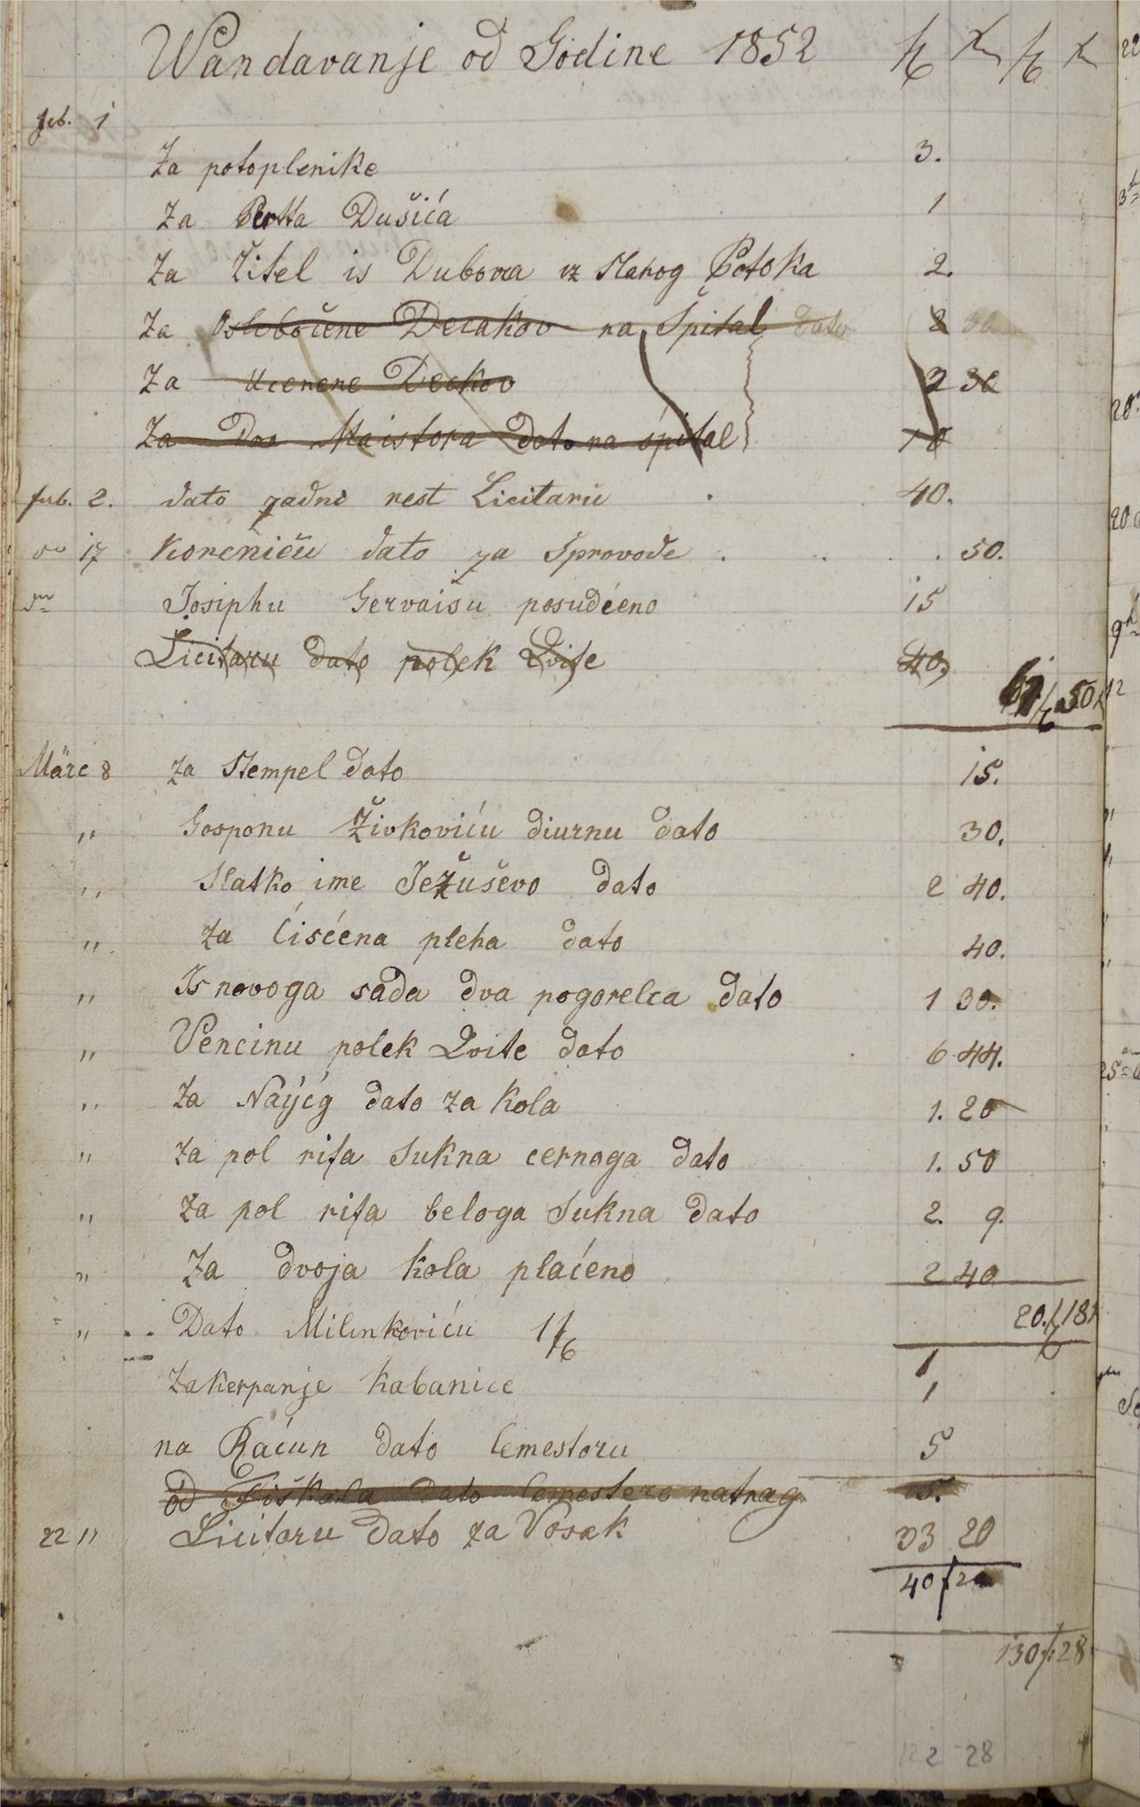 Wandavanje od Godine 1852 f x f x
feb. 1
Za potoplenike 3.
Za Dušića 1
Za Žitel is Dubovca iz Slanog Potoka 2.
Za Oslobočene Decakov na Špital dato 2 30
Za Ucenene Deckov 2 30
Za Dva Maistora dato na špital 10
feb. 2. dato zadni rest Licitaru 40.
17 Koreniču dato za Sprovode 50.
Josiphu Gervaišu posudćeno 15
Licitaru dato polek Qvite 40,
61 f 50 x
März 8 za Stempel dato 15.
" Gosponu Živkoviću diurnu dato 30.
" Slatko ime Ježuševo dato 2 40.
" Za Ćisćena pleha dato 40.
" Is novoga sada dva pogorelca dato 1 30.
" Vencinu polek Qvite dato 6 44.
" Za dato za Kola 1. 20
" Za pol rifa Sukna cernoga dato 1. 50
" Za pol rifa beloga Sukna dato 2. 9.
" Za dvoja Kola plaćeno 2 40
20. f 18 x
" Dato Milinkoviću 1 f 1
Zakerpanje Kabanice 1
na Raćun dato lemestoru 5
od Fiškala dato lemestero natrag 5.
22 " Licitaru dato za Vosak 33 20
40 f 20
130 f: 28
122 28